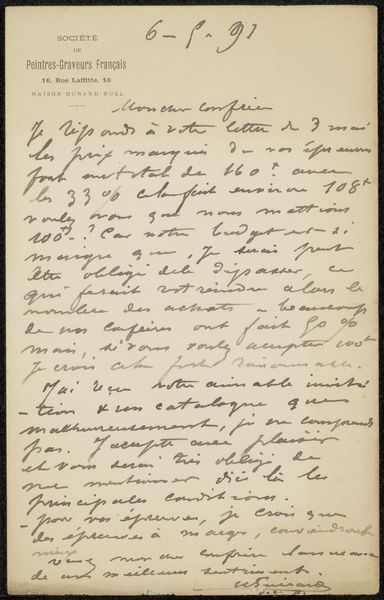 SOCIÉTÉ
DE
Peintres-Graveurs Français
16, Rue Laffitte, 16
MAISON DURAND-RUEL
6 - 5 - 91
Mon cher confrère
Je réponds à votre lettre du 3 mai
les prix marqués de vos épreuves
font un total de 160f. avec
les 33% cela fait environ 108f
voulez vous que nous mettions
100f ? Car notre budget est si
maigre que, je serais peut
être obligé de le dépasser, ce
qui ferait restreindre alors le
nombre des achats - beaucoup
de nos confrères ont fait 50%
mais, si vous voulez accepter 100f
je crois cela fort raisonnable.
J'ai reçu votre aimable invita
-tion & un catalogue que
malheureusement, je ne comprends
pas. J'accepte avec plaisir
et vous serai très obligé de
me mentionner dès là les
principales conditions.
- pour vos épreuves, je crois que
des épreuves à marges, conviendraient
mieux
mon cher confrère l'assurance
de mes meilleurs sentiments.